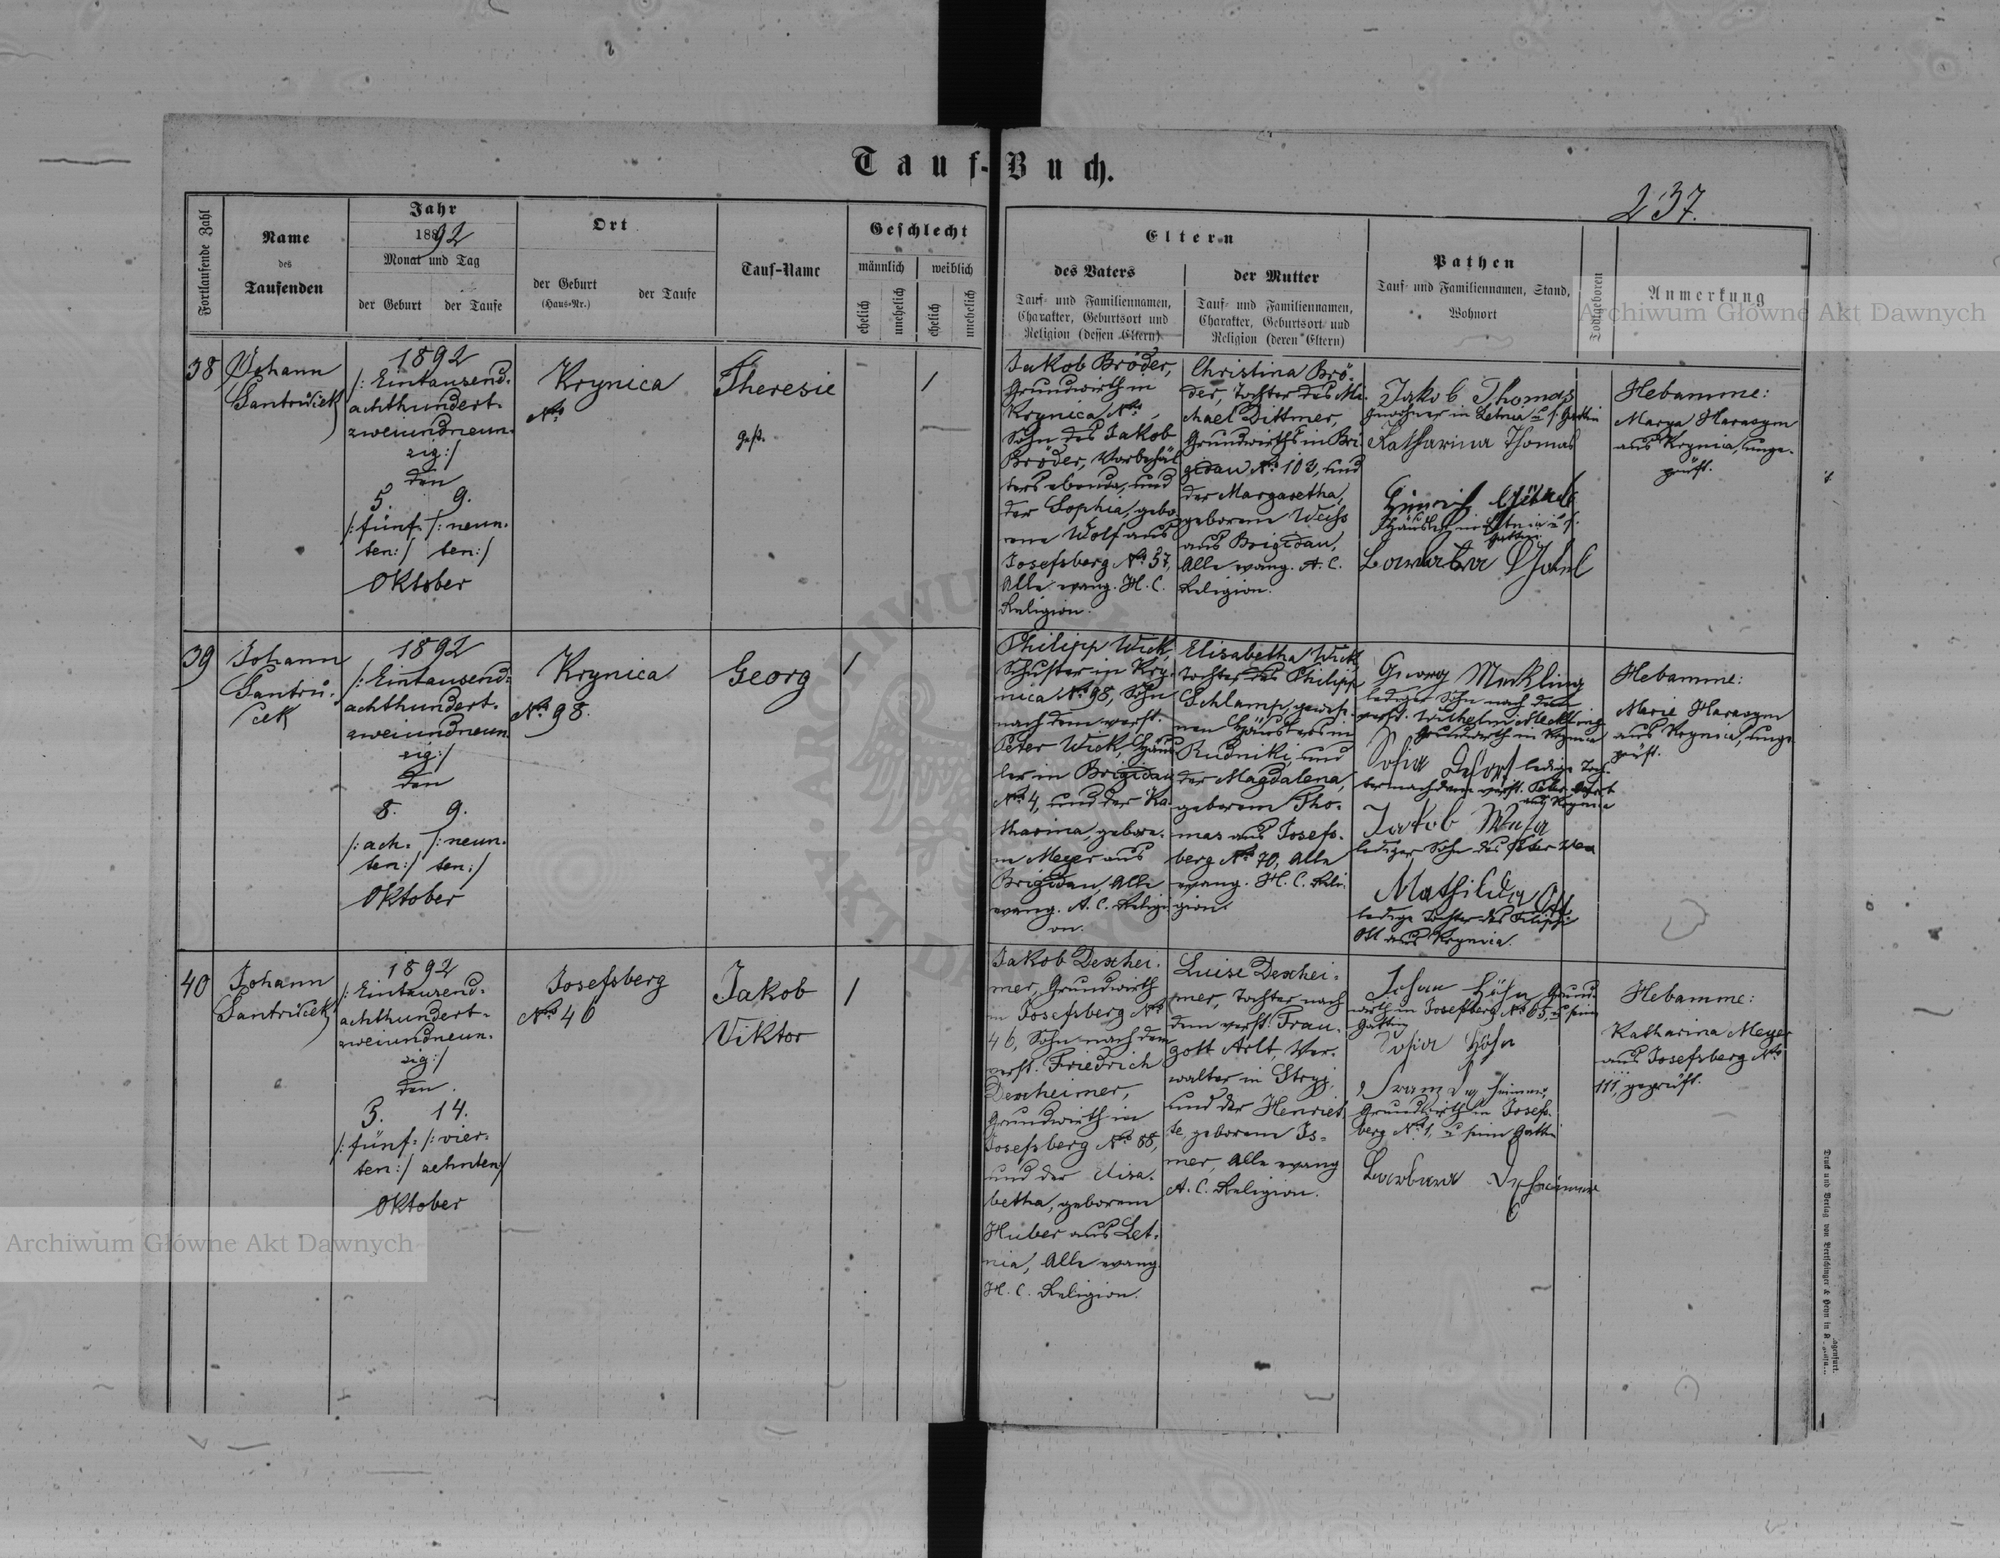 Tauf-Buch.
237.
Fortlaufende Zahl
Name
des
Taufenden
Jahr
1892
Monat und Tag
der Geburt
der Taufe
Ort
der Geburt
(Haus-Nr.)
der Taufe
Tauf-Name
Geschlecht
männlich
weiblich
ehelich
unehelich
ehelich
unehelich
Eltern
des Vaters
Tauf- und Familiennamen,
Charakter, Geburtsort und
Religion (dessen Eltern)
der Mutter
Tauf- und Familiennamen,
Charakter, Geburtsort und
Religion (deren Eltern)
Pathen
Tauf- und Familiennamen, Stand,
Wohnort
Todtgeboren
Anmerkung
38
Johann
Santrůček
1892
/: Eintausend-
achthundert-
zweiundneun-
zig :/
den
5. 9.
/: fünf- /: neun-
ten :/ ten :/
Oktober
Krynica
No
Theresie
gest.
/
Jakob Bröder,
Grundwirth in
Krynica No ,
Sohn des Jakob
Bröder, Vorbehäl
ters ebenda, und
der Sophia, gebo
rene Wolf aus
Josefsberg No 57,
Alle evang. H. C.
Religion.
Christina Brö-
der, Tochter des Mi-
chael Dittmer,
Grundwirths in Bri-
gidau No 103, und
der Margaretha,
geborene Weiss
aus Brigidau,
Alle evang. A. C.
Religion.
Jakob Thomas
in Letnia u. s. Gattin
Katharina Thomas
Gattin
Hebamme:
Marya Harasym
aus Krynica, unge-
prüft.
39
Johann
Santrů-
ček
1892
/: Eintausend-
achthundert-
zweiundneun-
zig :/
den
8. 9.
/: ach- /: neun-
ten :/ ten :/
Oktober
Krynica
No 98.
Georg
/
Philipp Wick,
Schuster in Kry-
nica No 98, Sohn
nach dem verst.
Peter Wick, Häus
ler in Brigidau
No 4, und der Ka-
tharina, gebore-
ne Meyer aus
Brigidau, Alle
evang. A. C. Religi
on.
Elisabetha Wick
Tochter des Philipp
Schlamp, gewese-
nen Häuslers in
Rudniki, und
der Magdalena,
geborene Tho-
mas aus Josefs-
berg No 70, Alle
evang. H. C. Reli-
gion.
Georg Meckling
lediger Sohn nach dem
verst. Wilhelm Meckling
Grundwirth in Krynica
Sofia ledige Toch-
ter nach dem verst. Peter
aus Krynica
Jakob
lediger Sohn des Peter
Mathilda Ott
ledige Tochter des Filipp
Ott aus Krynica.
Hebamme:
Marie Harasym
aus Krynica, unge-
prüft.
40
Johann
Santrůček
1892
/: Eintausend-
achthundert-
zweiundneun-
zig :/
den
5. 14.
/: fünf- /: vier-
ten :/ zehnten :/
Oktober
Josefsberg
No 46
Jakob
Viktor
/
Jakob Dexhei-
mer, Grundwirth
in Josefsberg No
46, Sohn nach dem
verst. Friedrich
Dexheimer,
Grundwirth in
Josefsberg No 88,
und der Elisa-
betha, geborene
Huber aus Let-
nia, Alle evang.
H. C. Religion.
Luise Dexhei-
mer, Tochter nach
dem verst. Trau-
gott Arlt, Ver-
walter in Stryj,
und der Henriet
te, geborene Is-
mer, Alle evang
A. C. Religion.
Johann Höhn, Grund-
wirth in Josefsberg No 65 u. seine
Gattin
Sofia Höhn
Franz Dexheimer,
Grundwirth in Josefs-
berg No 1, u. seine Gattin
Barbara Dexheimer
Hebamme:
Katharina Meyer
aus Josefsberg No
111, geprüft.
Archiwum Główne Akt Dawnych
Archiwum Główne Akt Dawnych